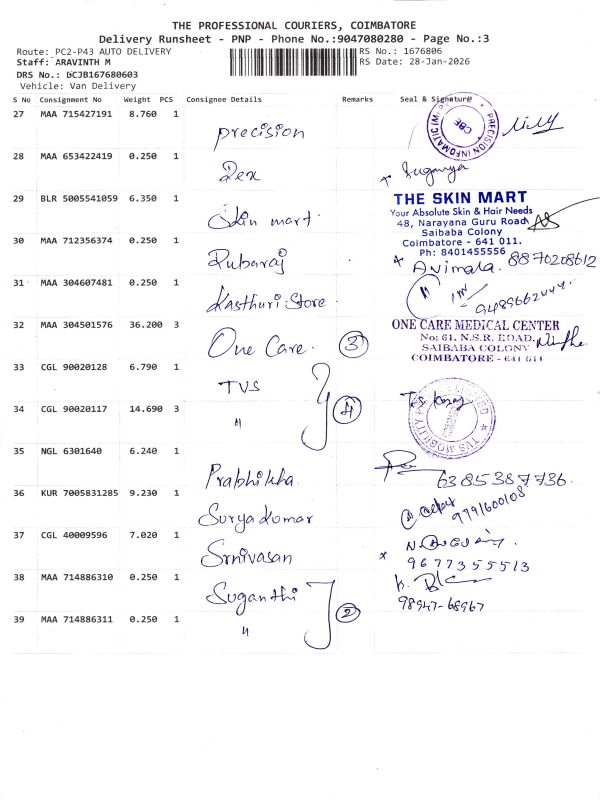 THE PROFESSIONAL COURIERS, COIMBATORE
Delivery Runsheet - PNP - Phone No.:9047080280 - Page No.:3
Route: PC2-P43 AUTO DELIVERY RS No.: 1676806
Staff: ARAVINTH M RS Date: 28-Jan-2026
DRS No.: BCJB167680603
Vehicle: Van Delivery
S No Consignment No Weight PCS Consignee Details Remarks Seal & Signature
27 MAA 715427191 8.760 1
precision
CBE
28 MAA 653422419 0.250 1
Rex
Suganya
29 BLR 5005541059 6.350 1
Skin mart
THE SKIN MART
Your Absolute Skin & Hair Needs
48, Narayana Guru Road
Saibaba Colony
Coimbatore - 641 011.
Ph: 8401455556
30 MAA 712356374 0.250 1
Rubaraj
Animala. 8870208612
31 MAA 304607481 0.250 1
Kasthuri Store
32 MAA 304501576 36.200 3
One Care 3
ONE CARE MEDICAL CENTER
No: 61, N.S.R. ROAD
SAIBABA COLONY
COIMBATORE - 641 011
33 CGL 90020128 6.790 1
TVS
34 CGL 90020117 14.690 3
" 4
TVS MOBILITY
35 NGL 6301640 6.240 1
Prabhikha
6385387736
36 KUR 7005831285 9.230 1
Surya Kumar
9791600108
37 CGL 40009596 7.020 1
Srnivasan
9677355513
38 MAA 714886310 0.250 1
Suganthi
98947-68967
39 MAA 714886311 0.250 1
" 2